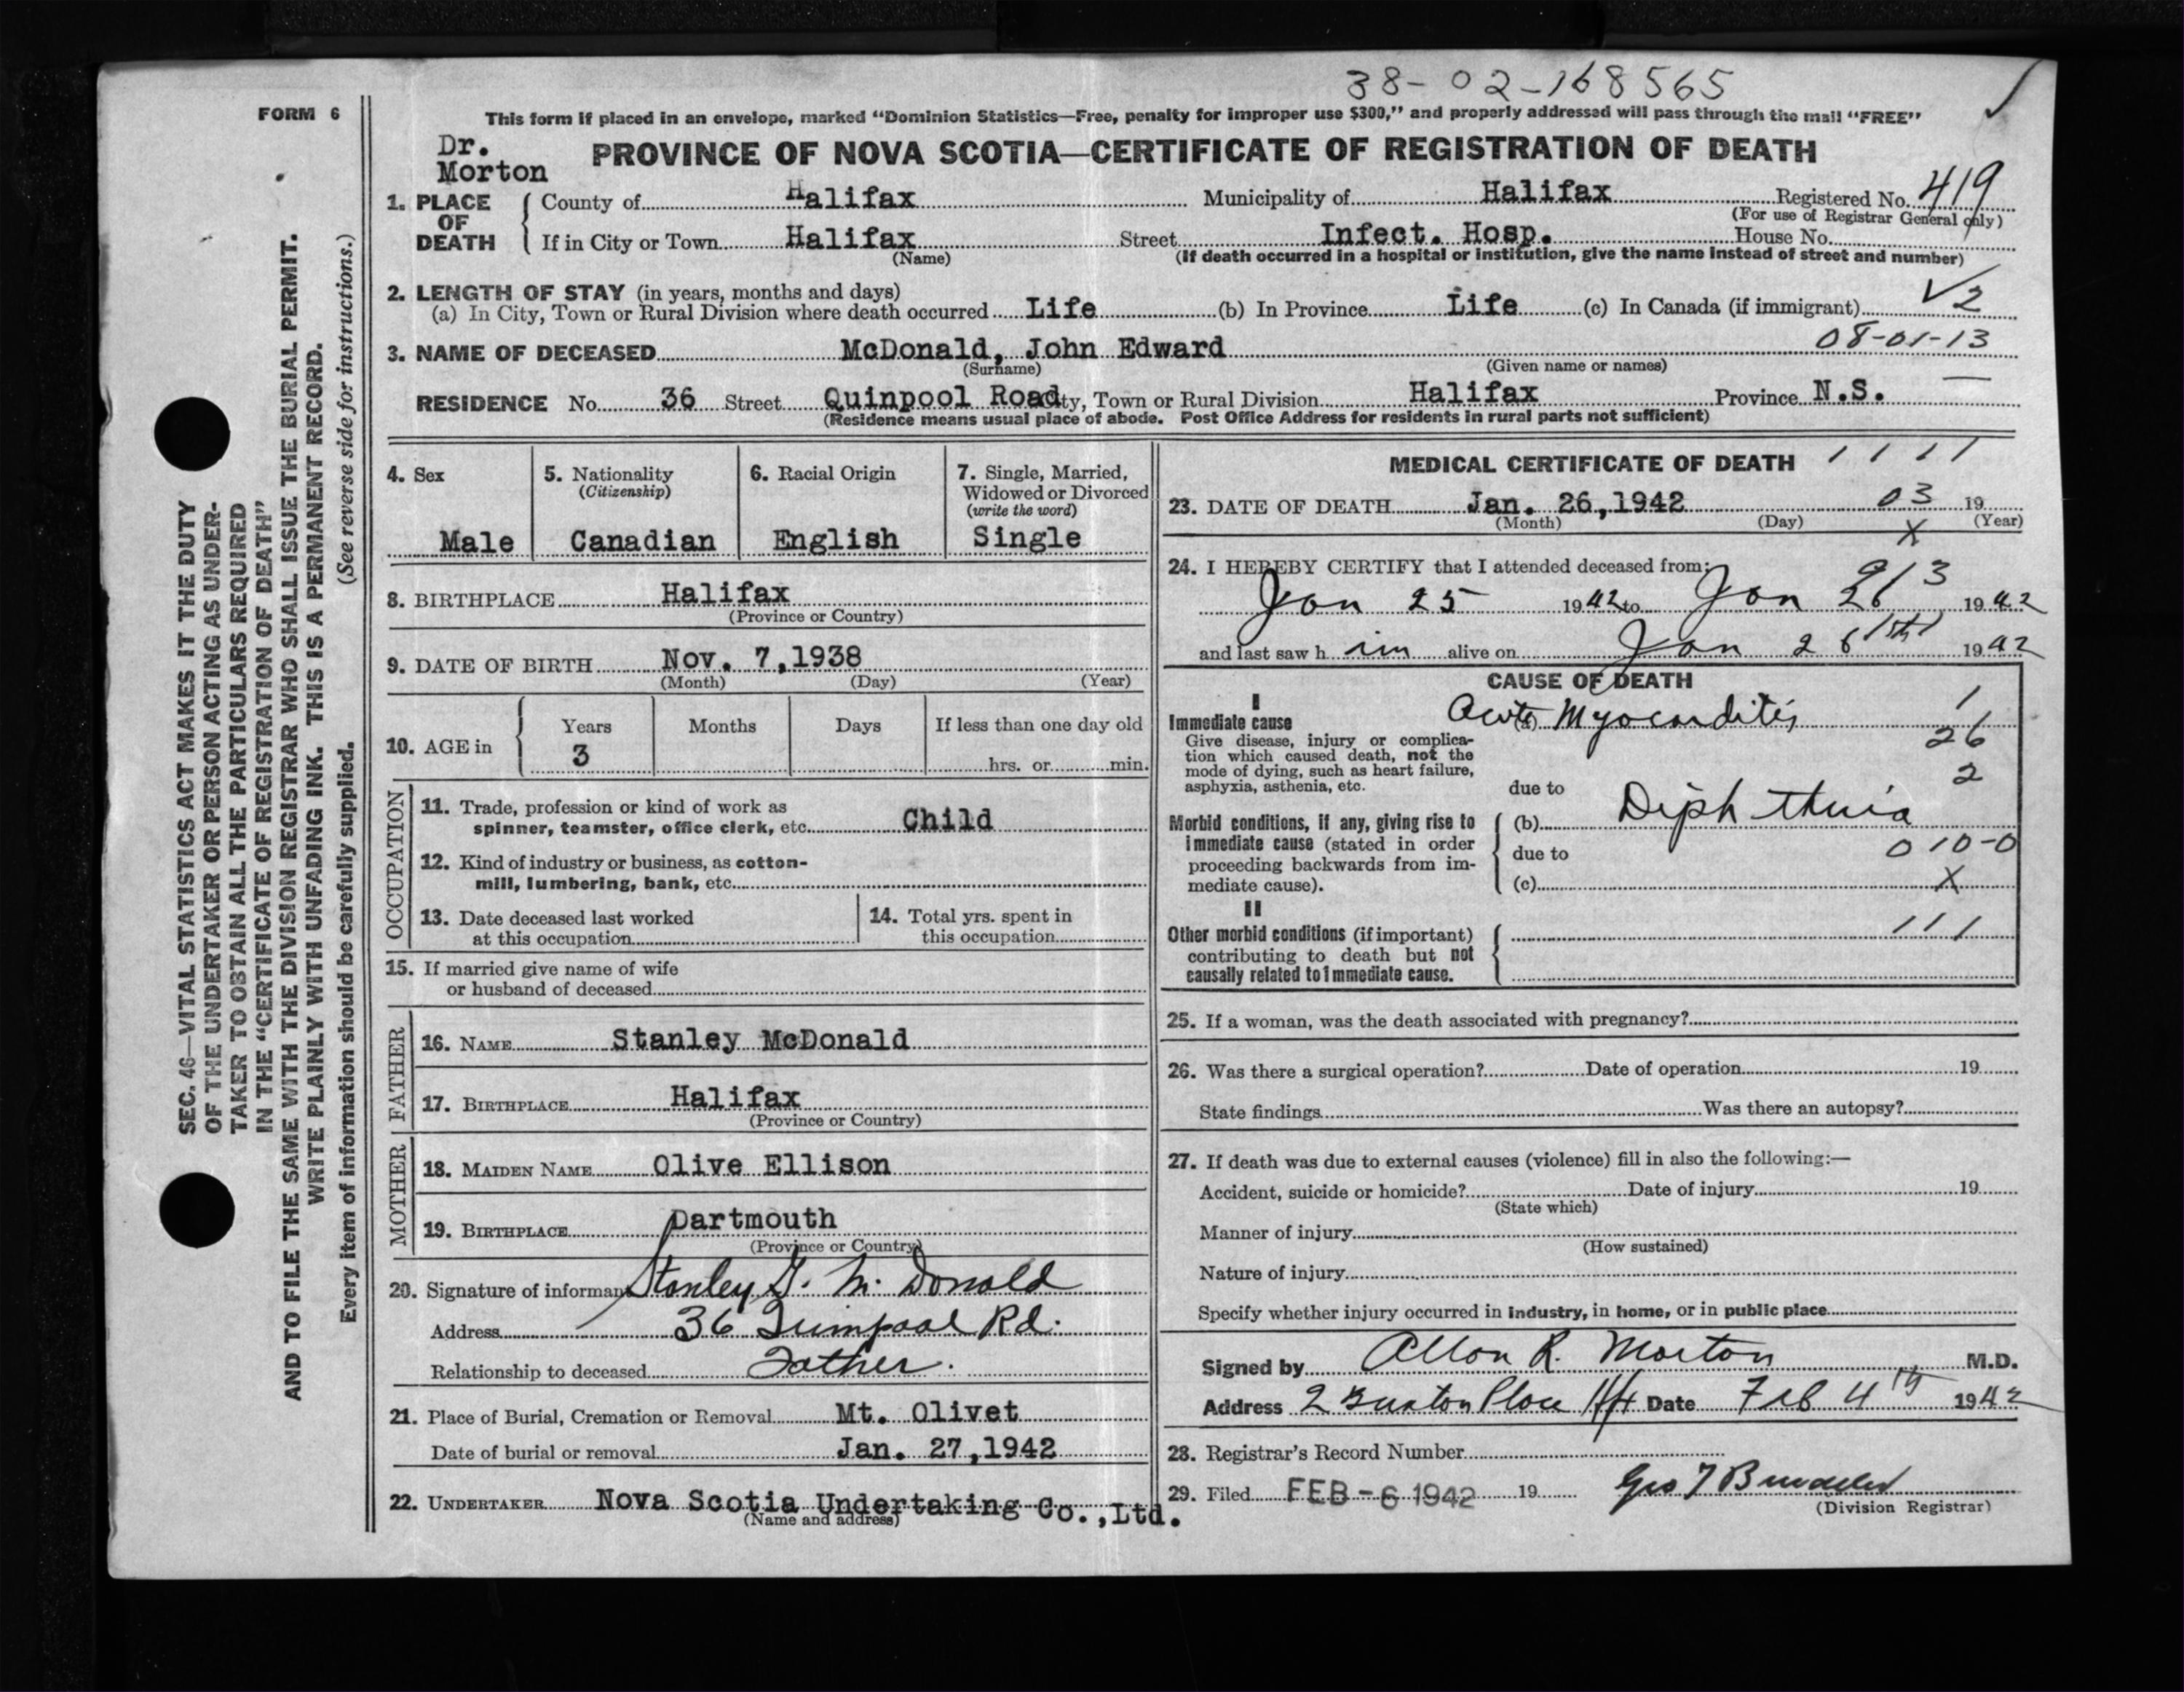 38-02-168565
FORM 6
This form if placed in an envelope, marked "Dominion Statistics—Free, penalty for improper use $300," and properly addressed will pass through the mail "FREE"
Dr.
Morton
PROVINCE OF NOVA SCOTIA—CERTIFICATE OF REGISTRATION OF DEATH
1. PLACE OF DEATH
County of Halifax Municipality of Halifax Registered No. 419
(For use of Registrar General only)
If in City or Town Halifax Street Infect. Hosp. House No.
(Name) (If death occurred in a hospital or institution, give the name instead of street and number)
2. LENGTH OF STAY (in years, months and days)
(a) In City, Town or Rural Division where death occurred Life (b) In Province Life (c) In Canada (if immigrant) 2
08-01-13
3. NAME OF DECEASED McDonald, John Edward
(Surname) (Given name or names)
RESIDENCE No. 36 Street Quinpool Road City, Town or Rural Division Halifax Province N.S.
(Residence means usual place of abode. Post Office Address for residents in rural parts not sufficient)
SEC. 46—VITAL STATISTICS ACT MAKES IT THE DUTY
OF THE UNDERTAKER OR PERSON ACTING AS UNDER-
TAKER TO OBTAIN ALL THE PARTICULARS REQUIRED
IN THE "CERTIFICATE OF REGISTRATION OF DEATH"
AND TO FILE THE SAME WITH THE DIVISION REGISTRAR WHO SHALL ISSUE THE BURIAL PERMIT.
WRITE PLAINLY WITH UNFADING INK. THIS IS A PERMANENT RECORD.
Every item of information should be carefully supplied. (See reverse side for instructions.)
4. Sex
Male
5. Nationality
(Citizenship)
Canadian
6. Racial Origin
English
7. Single, Married,
Widowed or Divorced
(write the word)
Single
8. BIRTHPLACE Halifax
(Province or Country)
9. DATE OF BIRTH Nov. 7, 1938
(Month) (Day) (Year)
10. AGE in
Years Months Days If less than one day old
3 hrs. or min.
OCCUPATION
11. Trade, profession or kind of work as
spinner, teamster, office clerk, etc. Child
12. Kind of industry or business, as cotton-
mill, lumbering, bank, etc.
13. Date deceased last worked
at this occupation
14. Total yrs. spent in
this occupation
15. If married give name of wife
or husband of deceased
FATHER
16. NAME Stanley McDonald
17. BIRTHPLACE Halifax
(Province or Country)
MOTHER
18. MAIDEN NAME Olive Ellison
19. BIRTHPLACE Dartmouth
(Province or Country)
20. Signature of informant Stanley J. McDonald
Address 36 Quinpool Rd.
Relationship to deceased Father.
21. Place of Burial, Cremation or Removal Mt. Olivet
Date of burial or removal Jan. 27, 1942
22. UNDERTAKER Nova Scotia Undertaking Co., Ltd.
(Name and address)
MEDICAL CERTIFICATE OF DEATH 1 1 1 1
23. DATE OF DEATH Jan. 26, 1942 03 19
(Month) (Day) (Year)
X
24. I HEREBY CERTIFY that I attended deceased from:
Jan 25 1942 to Jan 26 1942
and last saw h im alive on Jan 26 1942
CAUSE OF DEATH
I
Immediate cause (a) Acute Myocarditis 1
Give disease, injury or complica-
tion which caused death, not the
mode of dying, such as heart failure,
asphyxia, asthenia, etc.
26
2
due to
Morbid conditions, if any, giving rise to
immediate cause (stated in order
proceeding backwards from im-
mediate cause).
(b) Diphtheria
due to 010-0
(c) X
II
Other morbid conditions (if important)
contributing to death but not
causally related to immediate cause.
1 1 1
25. If a woman, was the death associated with pregnancy?
26. Was there a surgical operation? Date of operation 19
State findings Was there an autopsy?
27. If death was due to external causes (violence) fill in also the following:—
Accident, suicide or homicide? Date of injury 19
(State which)
Manner of injury
(How sustained)
Nature of injury
Specify whether injury occurred in industry, in home, or in public place
Signed by Allan R. Morton M.D.
Address 2 Place Hfx Date Feb 4th 1942
28. Registrar's Record Number
29. Filed FEB -6 1942 19
(Division Registrar)